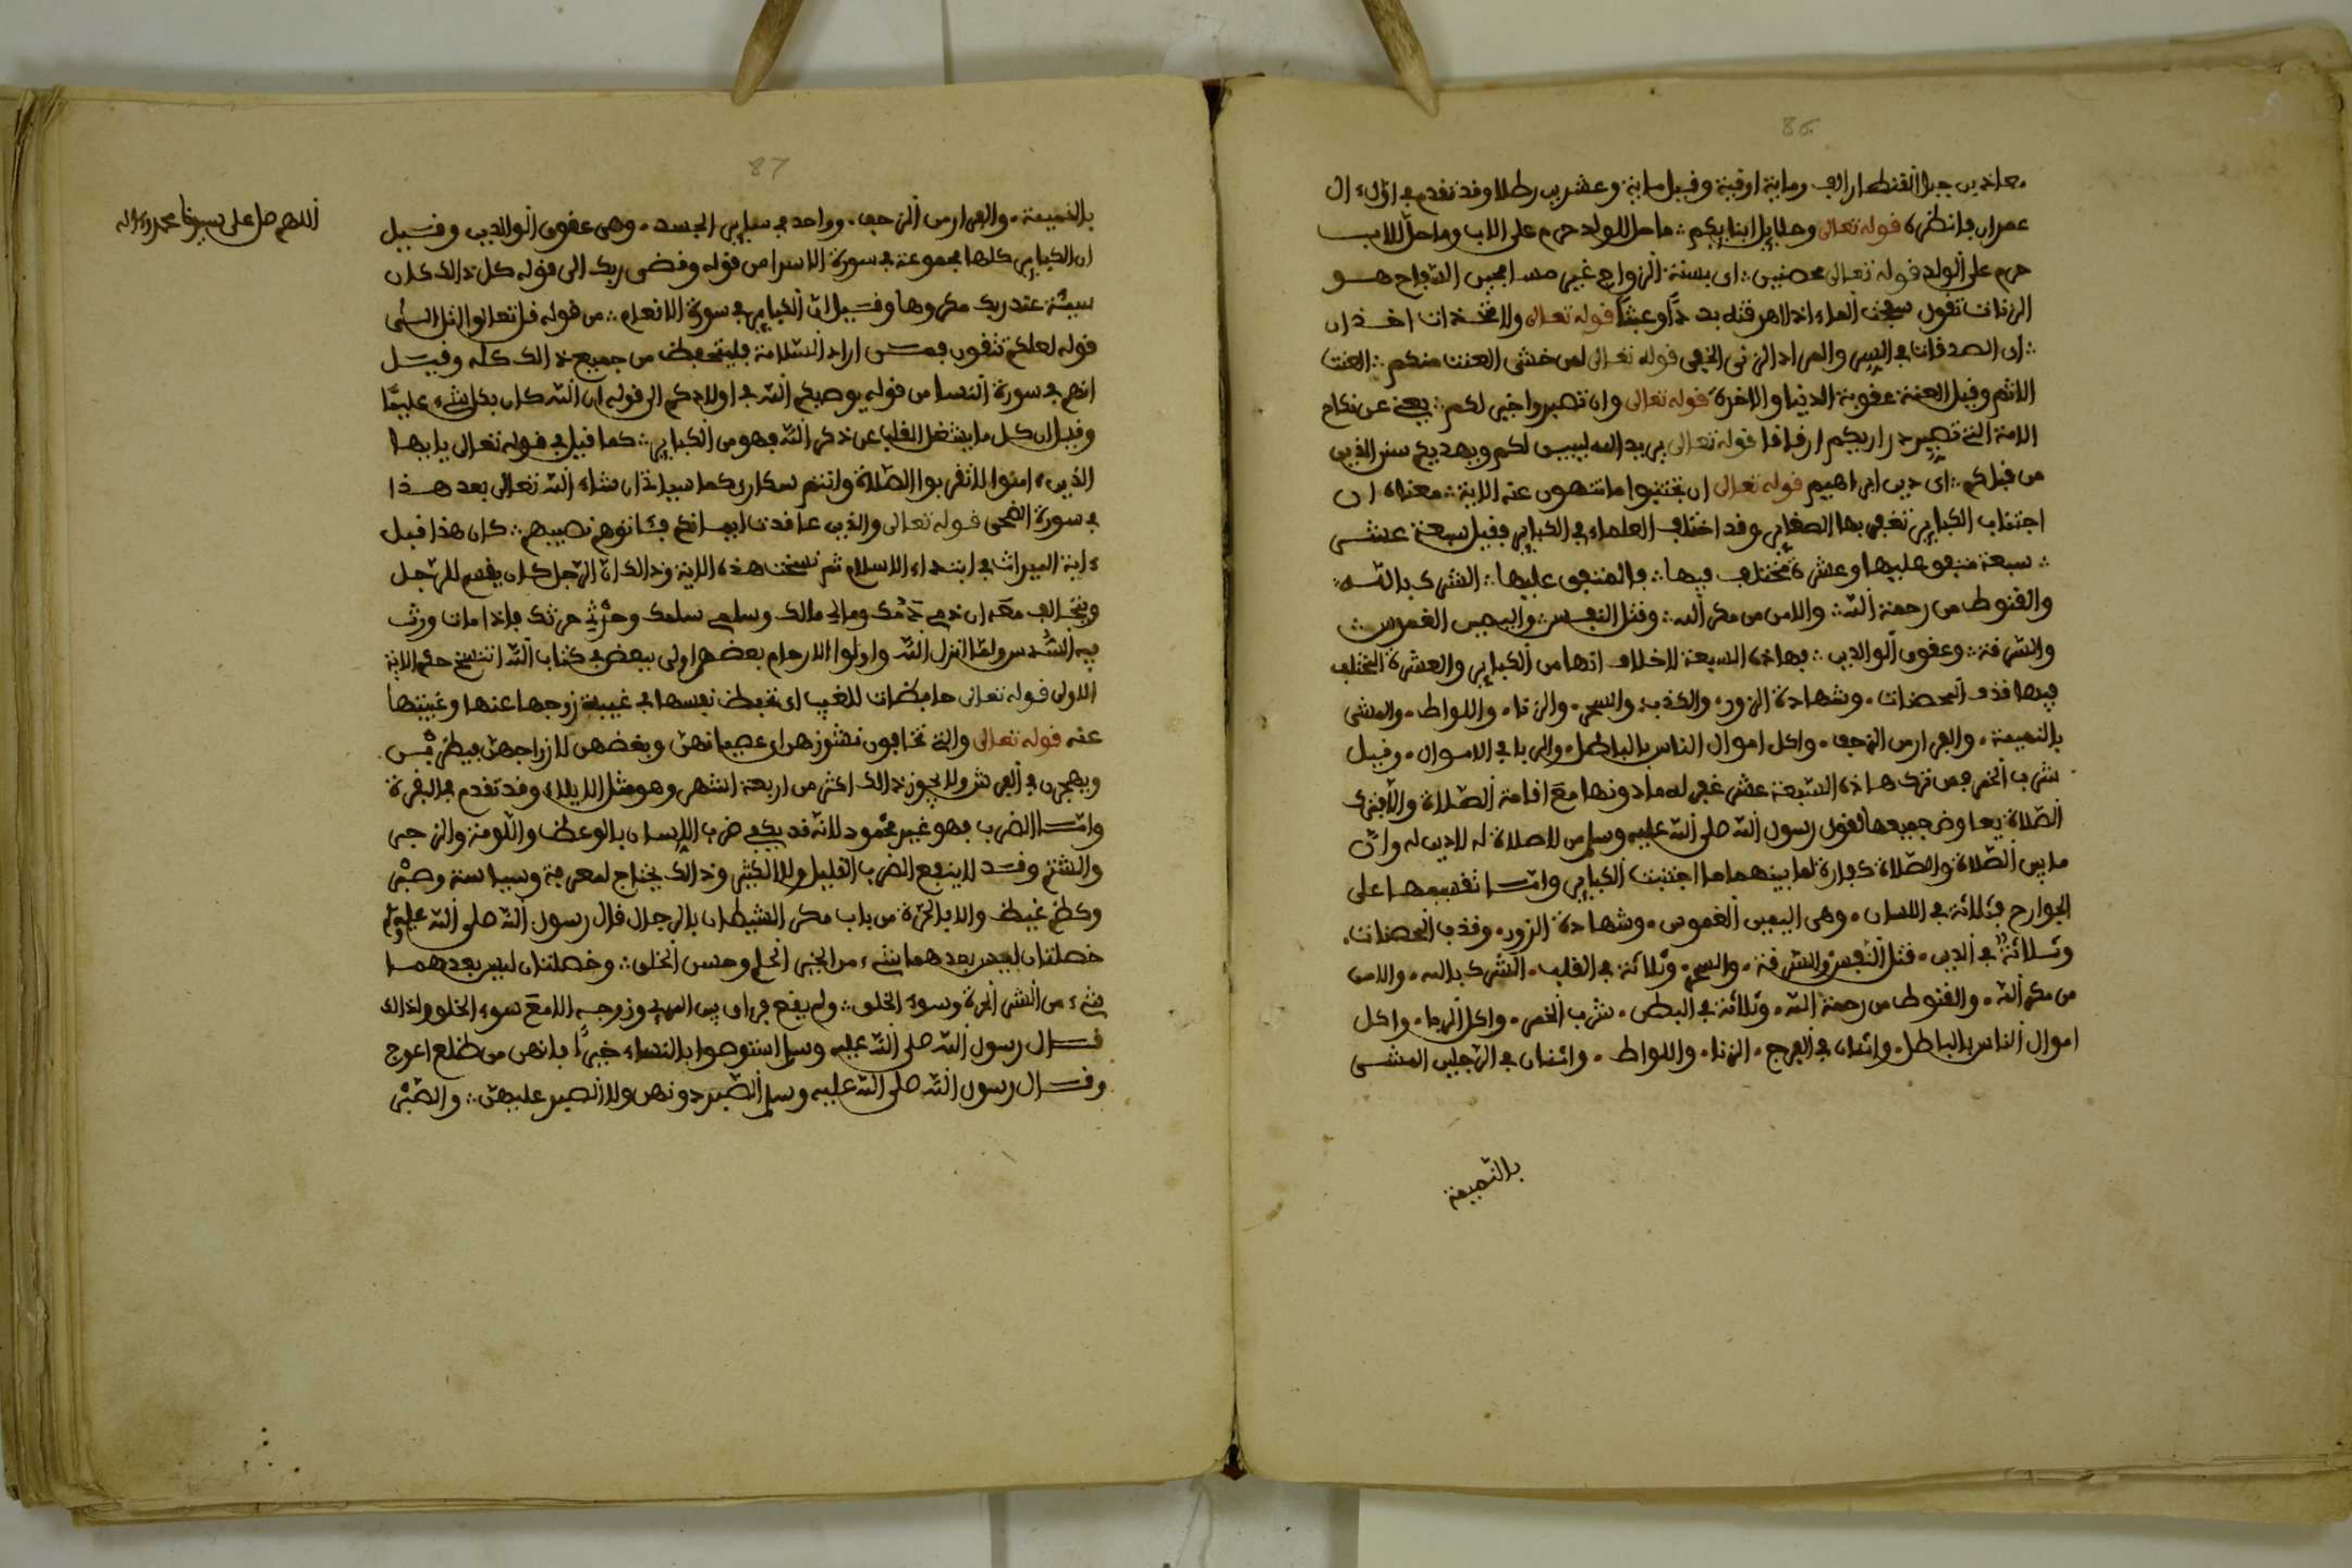 86
معاذ بن جبل القنطار الف وماية اوقية وقيل ماية وعشرين رطلا وقد تقدم في اول ءال
عمران فانظره قوله تعالى وحلايل ابنايكم ما حل للولد حرم على الاب وما حل للاب
حرم على الولد قوله تعالى محصنين اى بسنة الزواج غير مسافحين السفاح هو
الزنا تقول سفحت الماء اذا اهرقته قوله تعالى ولا متخذات اخدان
اى الصدقات في السر والمراد الزنى الخفي قوله تعالى لمن خشى العنت منكم العنت
الاثم وقيل العنة عقوبة الدنيا والاخرة قوله تعالى وان تصبروا خير لكم يعنى عن نكاح
الامة التى تصير ذراريكم ارقاقا قوله تعالى يريد الله ليبين لكم ويهديكم سنن الذين
من قبلكم اى دين ابراهيم قوله تعالى ان تجتنبوا ما تنهون عنه الاية معناه ان
اجتناب الكباير تغفر بها الصغاير وقد اختلف العلماء في الكباير فقيل سبعة عشر
سبعة متفق عليها وعشرة مختلف فيها فالمتفق عليها الشرك بالله
والقنوط من رحمة الله والامن من مكر الله وقتل النفس واليمين الغموس
والسرقة وعقوق الوالدين فهاذه السبعة لا خلاف انها من الكباير والعشرة المختلف
فيها قذف المحصنات وشهادة الزور والكذب والسحر والزنا واللواط والمشى
بالنميمة والفرار من الزحف واكل اموال الناس بالباطل والربا في الاموال وقيل
شرب الخمر فمن ترك هاذه السبعة عشر غفر له ما دونها مع اقامة الصلاة
الصلاة جميعها لقول رسول الله صلى الله عليه وسلم من لا صلاة له لا دين له وان
ما بين الصلاة والصلاة كفارة لما بينهما ما اجتنبت الكباير واما تقسيمها على
الجوارح فثلاثة في اللسان وهى اليمين الغموس وشهادة الزور وقذف المحصنات
وثلاثة في اليدين قتل النفس والسرقة والسحر وثلاثة في القلب الشرك بالله والامن
من مكر الله والقنوط من رحمة الله وثلاثة في البطن شرب الخمر واكل الربا واكل
اموال الناس بالباطل واثنان في الفرج الزنا واللواط واثنان في الرجلين المشى
بالنميمة
87
اللهم صل على سيدنا محمد وءاله
بالنميمة والفرار من الزحف وواحد في ساير الجسد وهى عقوق الوالدين وقيل
ان الكباير كلها مجموعة في سورة الاسرا من قوله وقضى ربك الى قوله كل ذالك كان
سيئة عند ربك مكروها وقيل ان الكباير في سورة الانعام من قوله قل تعالوا اتل الى
قوله لعلكم تتقون فمن اراد السلامة فليتحفظ من جميع ذالك كله وقيل
انها في سورة النسا من قوله يوصيكم الله في اولادكم الى قوله ان الله كان بكل شىء عليما
وقيل ان كل ما يشغل القلب عن ذكر الله فهو من الكباير كما قيل في قوله تعالى يايها
الذين ءامنوا لا تقربوا الصلاة وانتم سكارى كما سياتى ان شاء الله تعالى بعد هذا
في سورة الضحى قوله تعالى والذين عاقدت ايمانكم فئاتوهم نصيبهم كان هذا قبل
ءاية الميراث في ابتداء الاسلام ثم نسخت هذه الاية وذالك ان الرجل كان يقسم للرجل
ويتحالف معه ان دمى دمك ومالى مالك وسلمى سلمك وحربى حربك فاذا مات ورث
فيه السدس ولما انزل الله واولوا الارحام بعضهم اولى ببعض في كتاب الله انتسخ حكم الاية
الاولى قوله تعالى حافظات للغيب اى تحفظ نفسها في غيبة زوجها عنها وغيبتها
عنه قوله تعالى والتى تخافون نشوزهن اى عصيانهن وبغضهن لازواجهن
ويهجرن في الفرش ولا يجوز ذالك اكثر من اربعة اشهر وهو مثل الايلاء وقد تقدم في البقرة
واما الضرب فهو غير محمود لانه قد يكفى ضرب اللسان بالوعظ واللومة والزجر
والشتم وقد لا ينفع الضرب القليل ولا الكثير وذالك يحتاج لمعرفة وسياسة وصبر
وكظم غيظ من باب مكر الشيطان بالرجال قال رسول الله صلى الله عليه وسلم
خصلتان ليس بعدهما شىء من الخير الحلم وحسن الخلق وخصلتان ليس بعدهما
شىء من الشر وسوء الخلق ولم يقع فراق بين المرء وزوجه الا مع سوء الخلق ولذالك
قال رسول الله صلى الله عليه وسلم استوصوا بالنساء خيرا فانهن من ضلع اعوج
وقال رسول الله صلى الله عليه وسلم الصبر دونهن ولا الصبر عليهن والصبر